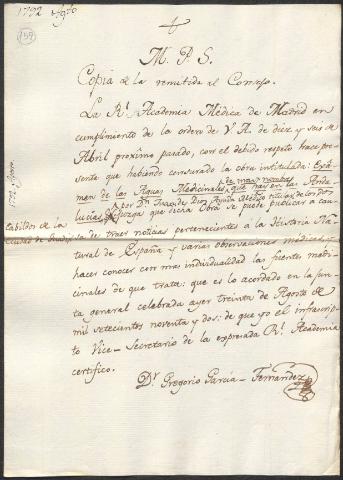 1792 Agto
159
M. P. S.
Copia de la remitida al Consejo.
La Rl. Academia Médica de Madrid en
cumplimiento de la orden de V. A. de diez, y seis de
Abril proximo pasado, con el debido respeto hace pre-
sente que habiendo censurado la obra intitulada: Exà-
de mas nombre
men de las Aguas Medicinales que hay en las Anda-
lucias, por Dn. Juan de Dios Ayuda Médico titular de
juzga que dicha Obra se puede publicar à cau-
Cabildos de la
Ciudad de
sa de traer noticias pertenecientes à la Historia Na-
tural de España y varias observaciones médicas, y
hacer conocer con mas individualidad las fuentes medi-
cinales de que trata: que es lo acordado en la jun-
ta general celebrada ayer treinta de Agosto de
mil setecientos noventa y dos: de que yo el infrascrip-
to Vice-Secretario de la expresada Rl. Academia
certifico.
Dr. Gregorio Garcia-Fernandez